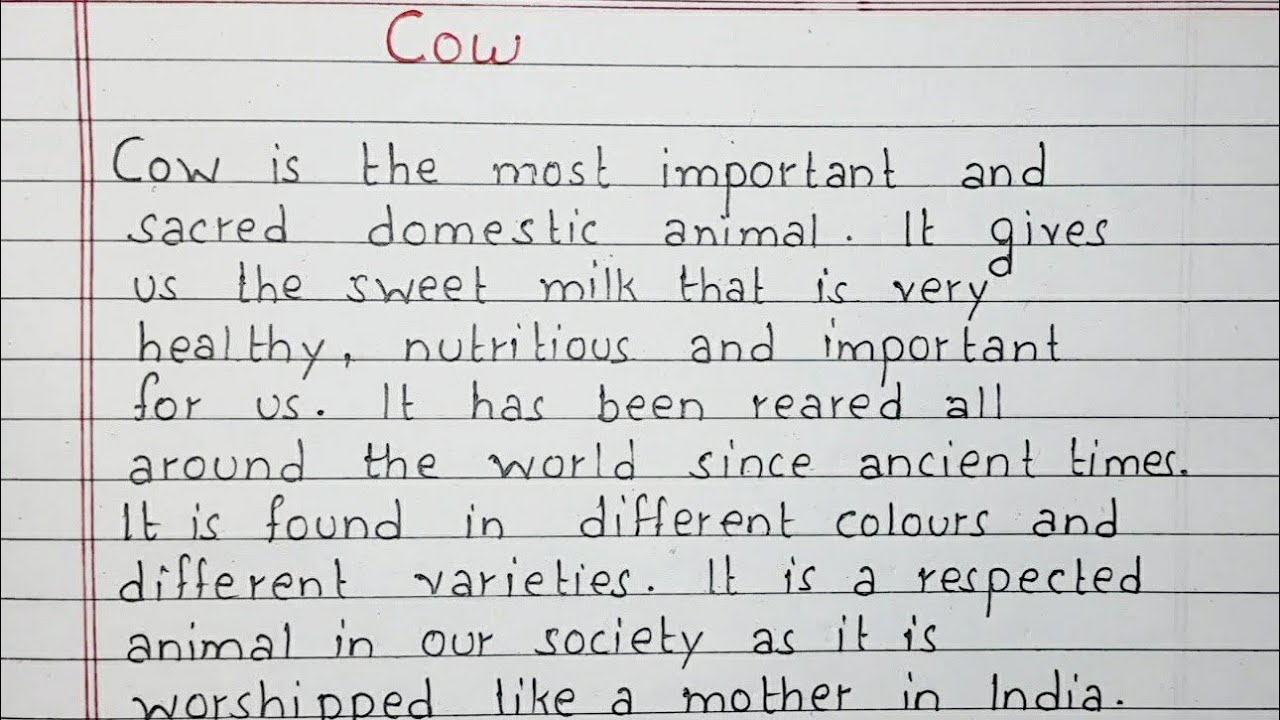 Cow
Cow is the most important and
sacred domestic animal. It gives
us the sweet milk that is very
healthy, nutritious and important
for us. It has been reared all
around the world since ancient times.
It is found in different colours and
different varieties. It is a respected
animal in our society as it is
worshipped like a mother in India.